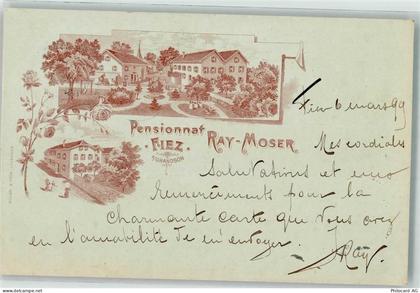 Pensionnat
RAY-MOSER
FIEZ.
S/GRANDSON
Fiez 6 mars 99
Mes cordiales
Salutations et mes
remerciements pour la
charmante carte que vous avez
eu l'amabilité de m'envoyer.
J Ray.
www.ansichtskartenversand.com
Copyright Postcard AG